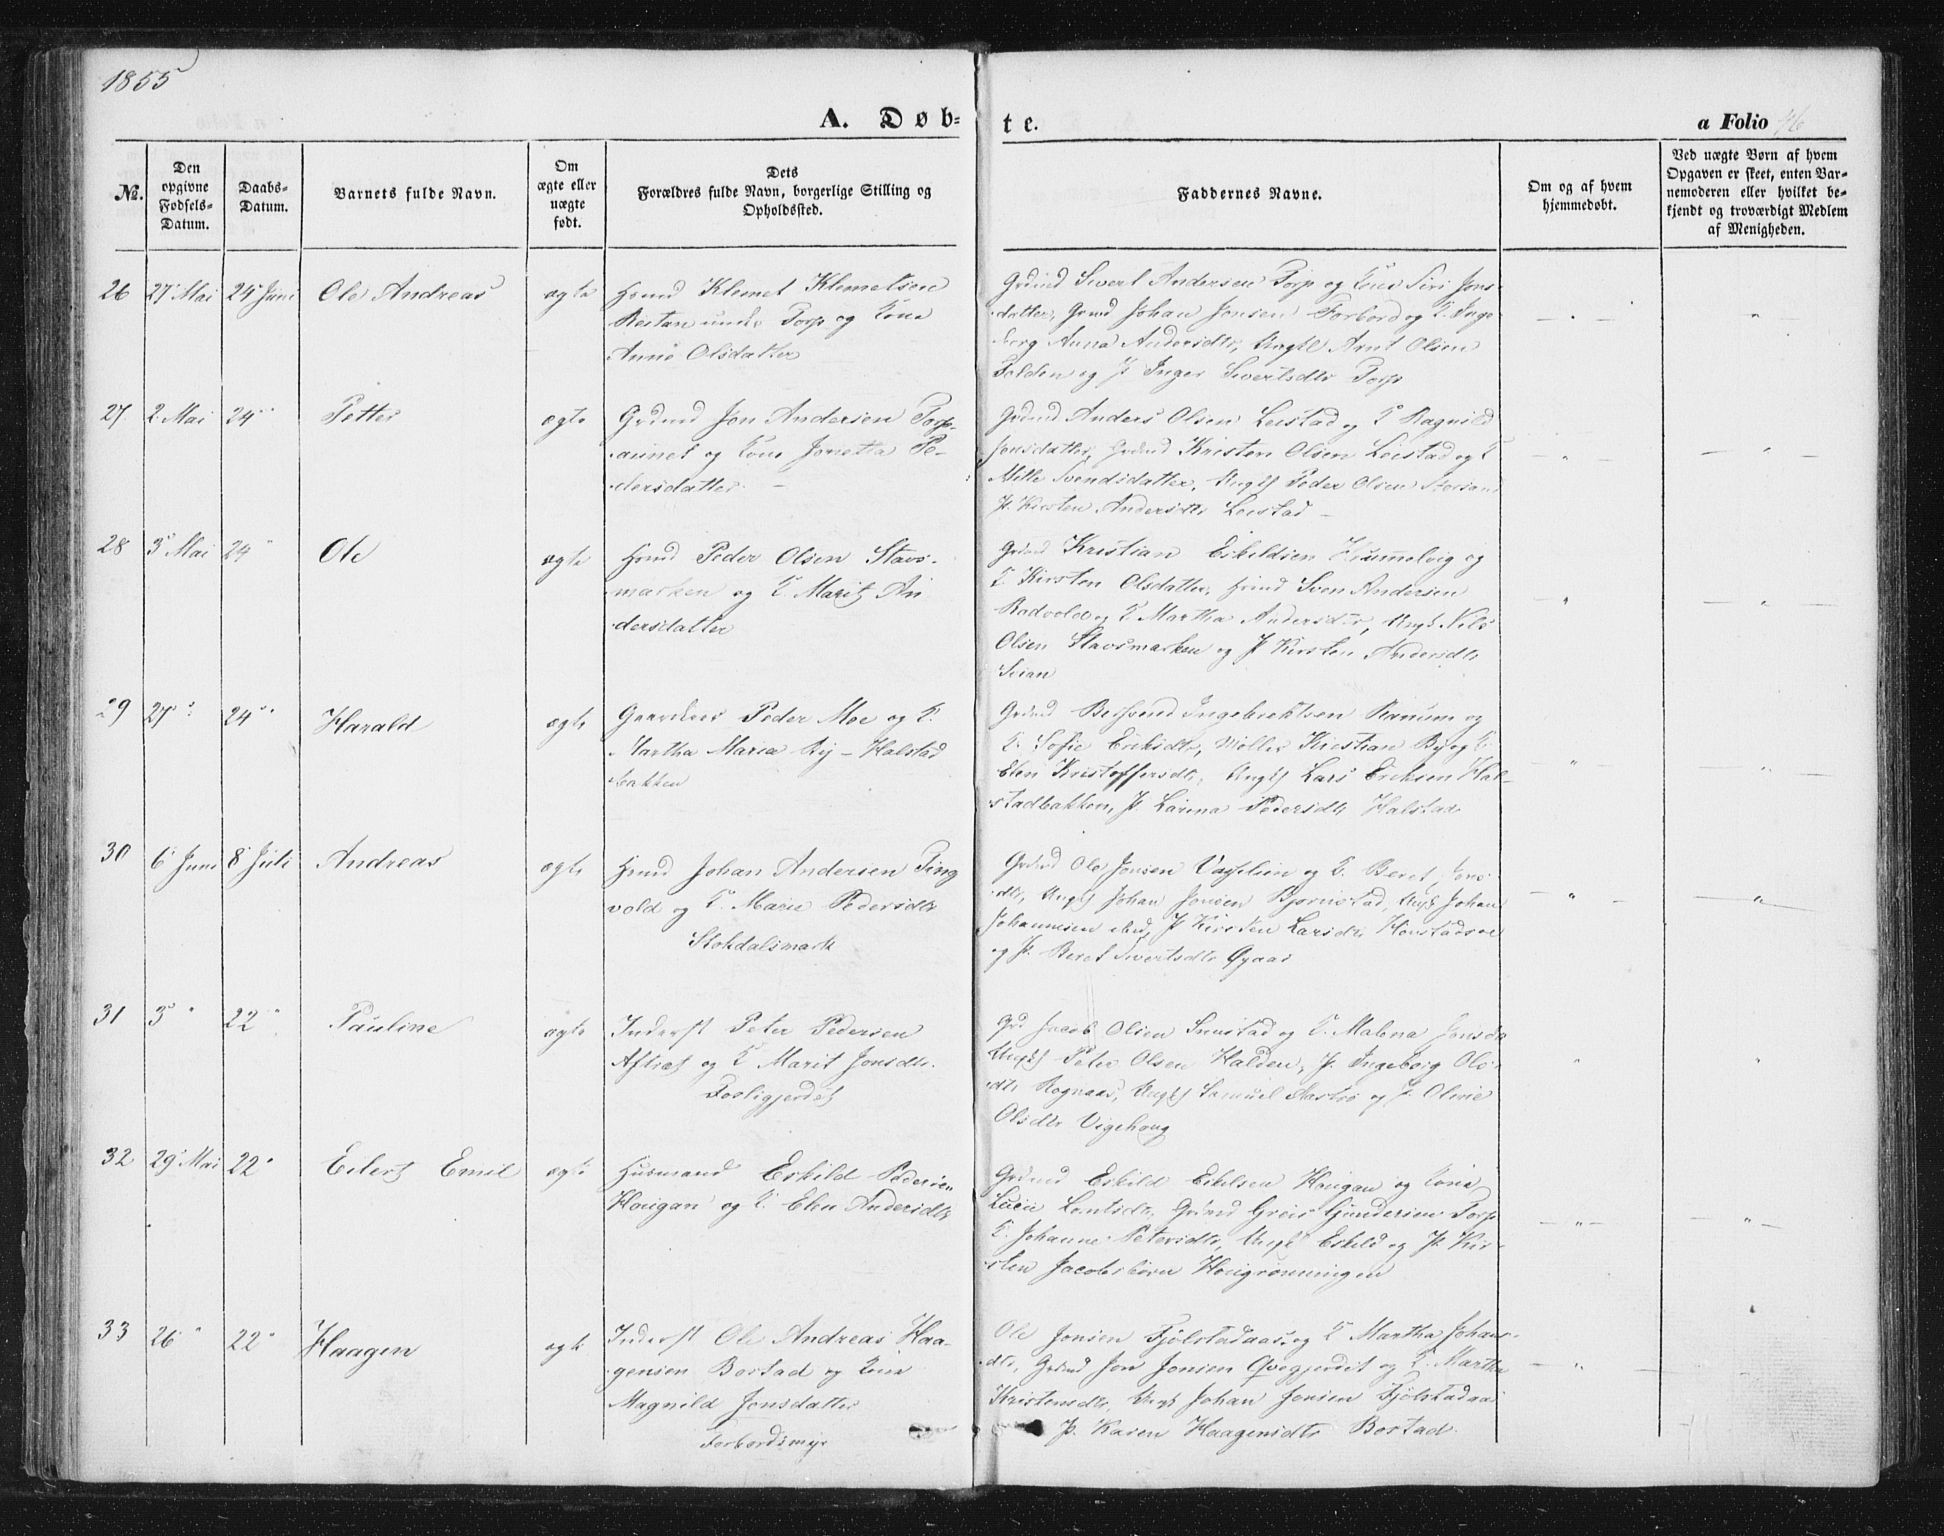 1855
A. Døb-
te.
a Folio 46
№.
Den
opgivne
Fødsels-
Datum.
Daabs-
Datum.
Barnets fulde Navn.
Om
ægte eller
uægte
født.
Dets
Forældres fulde Navn, borgerlige Stilling og
Opholdssted.
Faddernes Navne.
Om og af hvem
hjemmedøbt.
Ved uægte Børn af hvem
Opgaven er skeet, enten Bar-
nemoderen eller hvilket be-
kjendt og troværdigt Medlem
af Menigheden.
26 27 Mai 24 Juni Ole Andreas ægte
Hmd Klemet Klemetsen
Restan under Torp og Kone
Anne Olsdatter
Grdmd Sivert Andersen Torp og Kone Siri Jons-
datter, Grmd Johan Jonsen Forbord og K. Inge
berg Anna Andersdtr, Ungkl Arnt Olsen
Folden og P. Inger Sivertsdtr Torp
27 2 Mai 24 Petter ægte
Grdmd Jon Andersen Torp-
aunet og Kone Jonetta Pe-
dersdatter
Grdmd Anders Olsen Leistad og K Ragnild
Jonsdatter, Grdmd Kristen Olsen Leistad og K
Mille Svendsdatter, Ungk Peder Olsen
P. Kirsten Andersdtr Leistad
28 3 Mai 24 Ole ægte
Hmd Peder Olsen Stavs-
marken og K Marit An
dersdatter
Grdmd Kristian Eskildsen Hummelvig og
K Kirsten Olsdatter, Hmd Sven Andersen
Radvold og K Martha Andersdtr, Ungk Nils
Olsen Stavsmarken og P Kirsten Andersdtr
29 27 24 Harald ægte
Gaardbr Peder Moe og K.
Martha Maria By - Halstad
bakken
Grdmd Ingebrektsen Ranum og
K. Sofie Eriksdtr, Møller Kristian By og K
Elen Kristoffersdtr, Ungk Lars Eriksen Hal-
stadbakken, P. Larina Pedersdtr Halstad
30 6 Juni 8 Juli Andreas ægte
Hmd Johan Andersen Ting
vold og K. Marie Pedersdtr
Stokdalsmark
Grdmd Ole Jonsen Vasslien og K. Beret Jons
dtr, Ungk Johan Jonsen Bjørnstad, Ungk Johan
Johannesen ibid, P Kirsten Larsdtr
og P. Beret Sivertsdtr Øyaas
31 3 22 Pauline ægte
Inderst Peter Pedersen
Aftræt og K Marit Jonsdtr.
Grd Jacob Olsen Sunstad og K. Malena Jonsdt
Ungk Peter Olsen Halden, P. Ingeborg Ols-
dtr Rognaas, Ungk Samuel Hastad og P. Oline
Olsdtr Vigehaug
32 29 Mai 22 Eilert Emil ægte
Husmand Eskild Pedersen
Hougan og K. Elen Andersdtr
Grdmd Eskild Eskelsen Hougan og Kone
Lucie Lorntsdtr, Grdmd Greis Gundersen Torp
K. Johanne Petersdtr, Ungk Eskild og P. Kir-
sten Jacobsbørn Hougrønningen
33 26 22 Haagen ægte
Inderst Ole Andreas Haa-
gensen Borstad og Kone
Magnild Jonsdatter
Forbordsmyr
Ole Jonsen Fjølstadaas og K Martha Johans-
dtr, Grdmd Jon Jonsen Qvegjerdet og K. Martha
Kristensdtr, Ungk Johan Jonsen Fjølstadaas
P. Karen Haagensdtr Borstad.